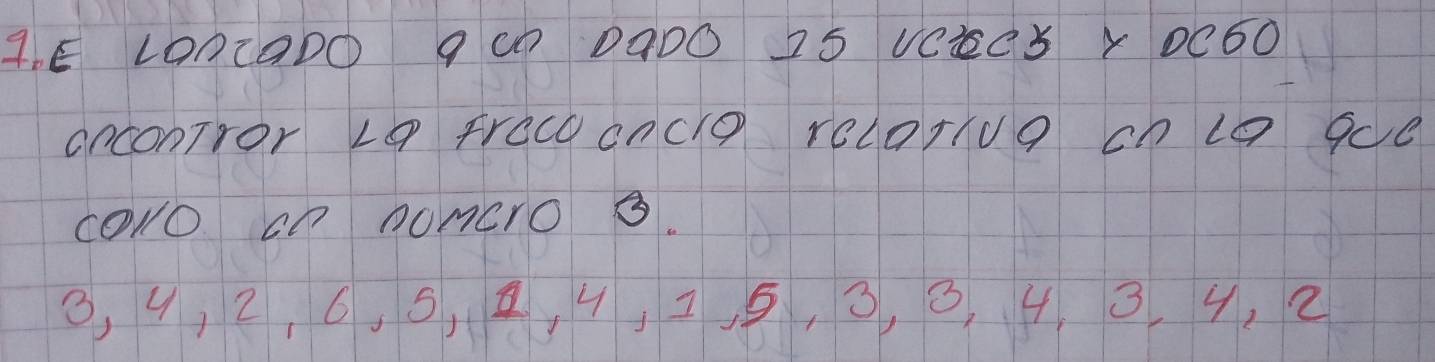 1. E Lanzado a un Dado 15 veces y Deseo
encontrar La frecuencia relativa en la que
cayo en numero 3.
3, 4, 2, 6, 5, 1, 4, 1, 5, 3, 3, 4, 3, 4, 2